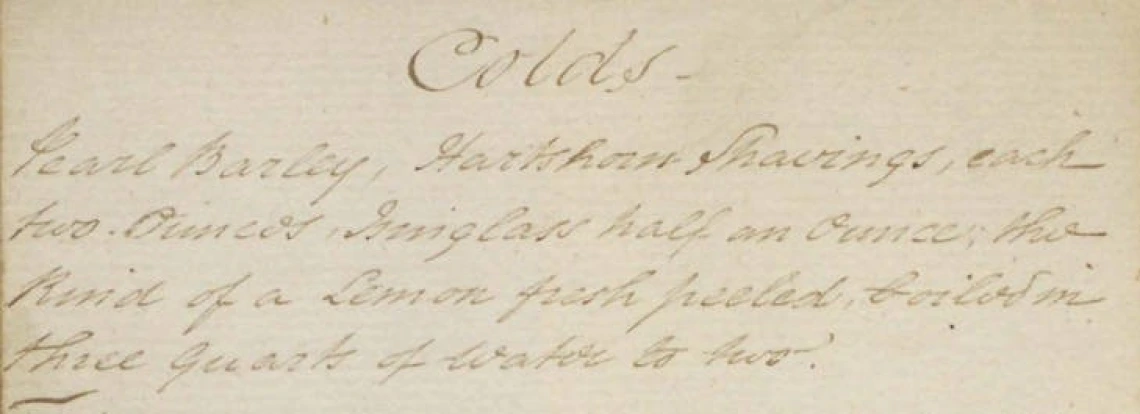 Colds -
Pearl Barley, Hartshorn Shavings, each
two Ounces, Isinglass half an Ounce, the
Rind of a Lemon fresh peeled, boiled in
three Quarts of water to two.